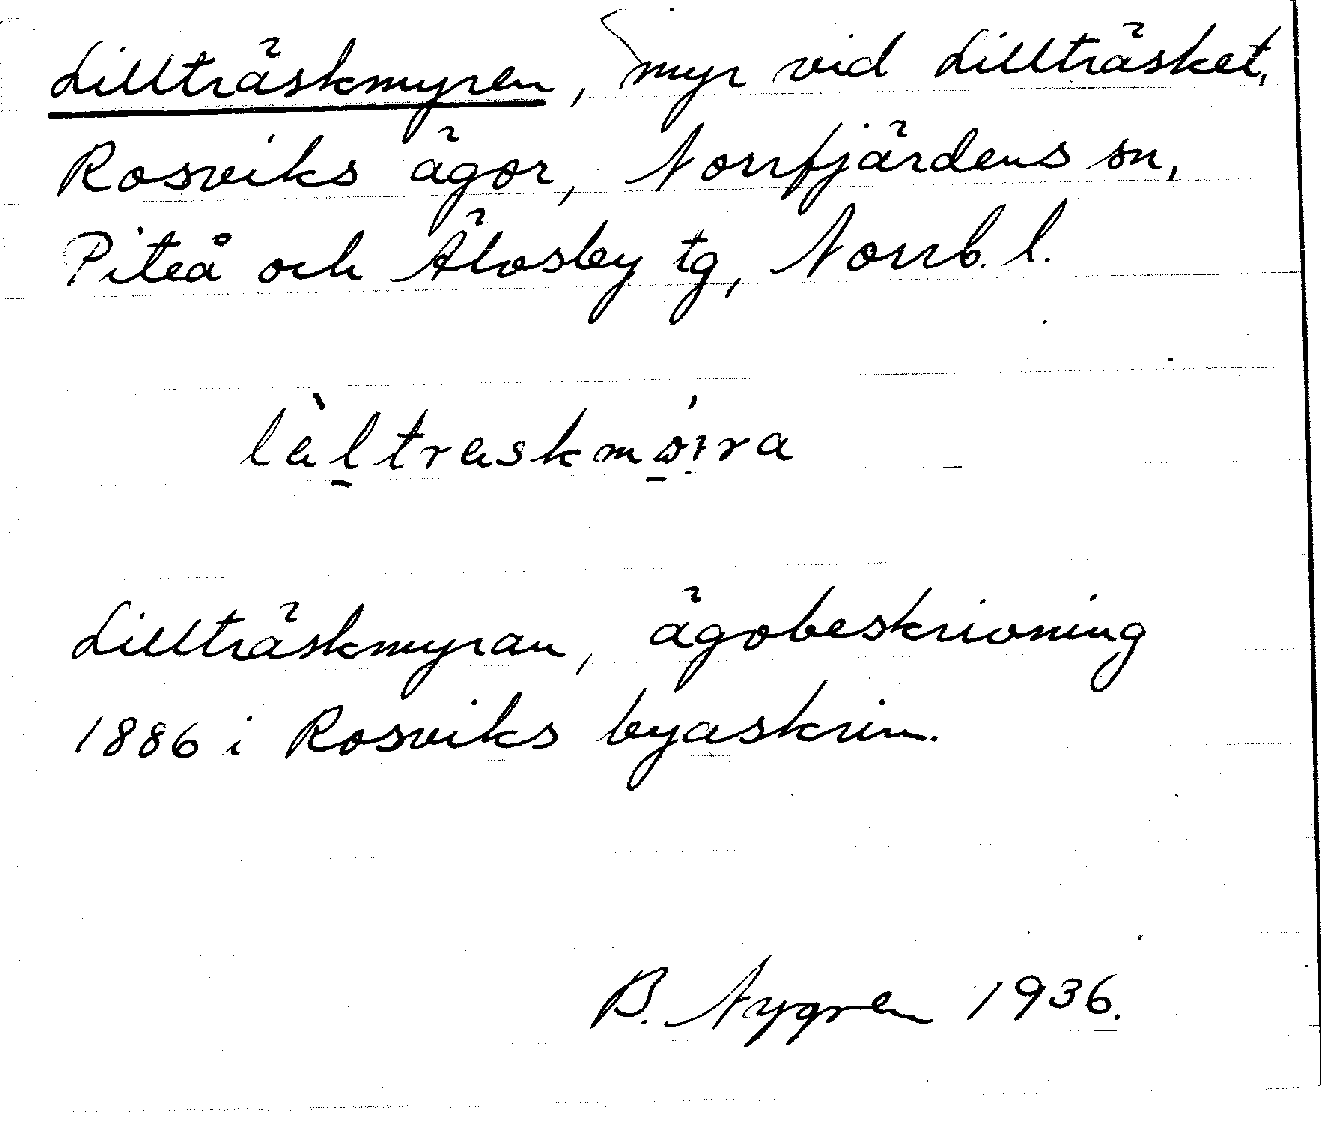 Lillträskmyren, myr vid Lillträsket,
Rosviks ägor, Norrfjärdens sn,
Piteå och Älvsby tg, Norrb. l.
làltraskmöira
Lillträskmyran, ägobeskrivning
1886 i Rosviks byaskrin.
B. Nygren 1936.